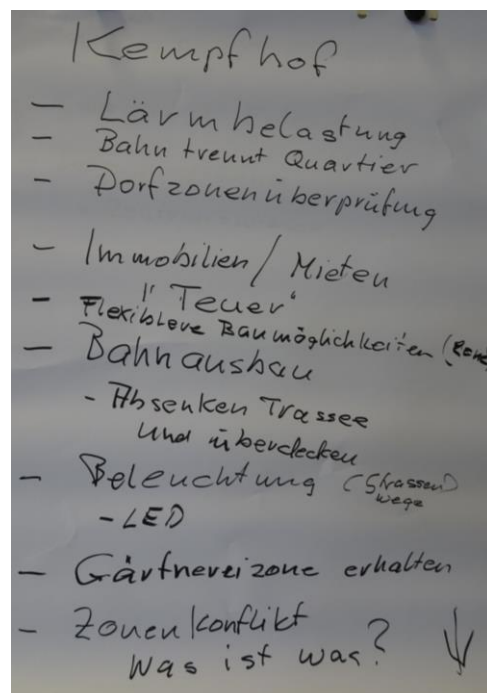 Kempfhof
- Lärmbelastung
- Bahn trennt Quartier
- Dorfzonenüberprüfung
- Immobilien / Mieten
"Teuer"
- Flexiblere Baumöglichkeiten
- Bahnausbau
- Absenken Trassee
und überdecken
- Beleuchtung (Strassen)
wege
- LED
- Gärtnereizone erhalten
- Zonenkonflikt
Was ist was?